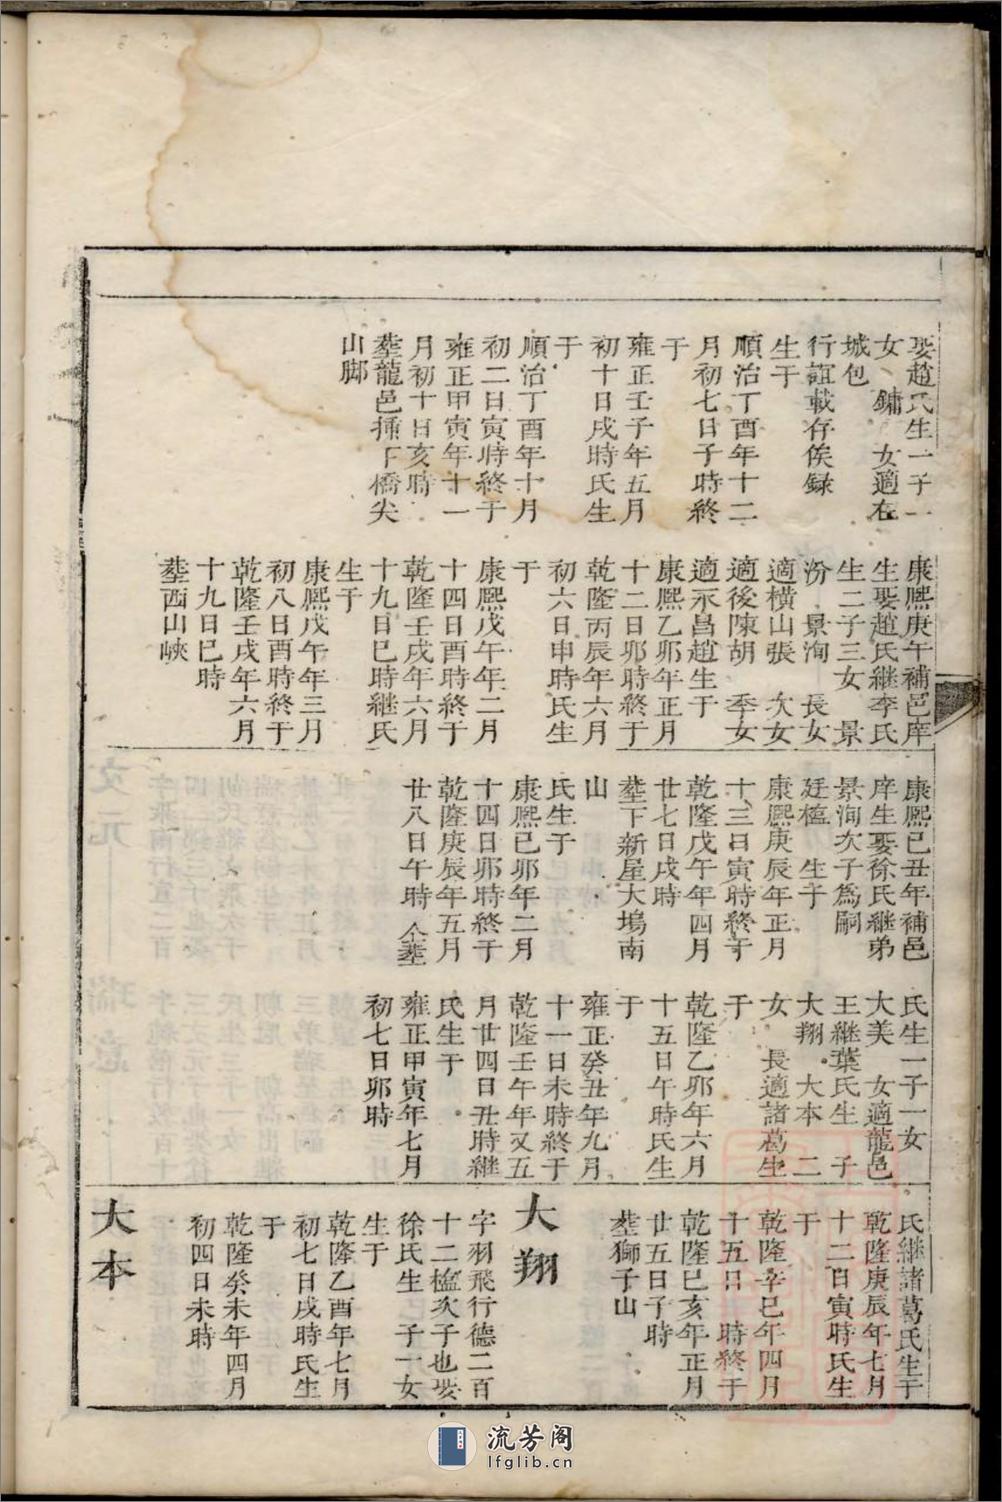 娶趙氏生一子一
女 鏞 女適在
城包
行誼載存俟録
生于
順治丁酉年十二
月初七日子時終
于
雍正壬子年五月
初十日戌時氏生
于
順治丁酉年十月
初二日寅時終于
雍正甲寅年十一
月初十日亥時
塟龍邑挿下橋尖
山脚
康熙庚午補邑庠
生娶趙氏継李氏
生二子三女 景
汾 景洵 長女
適橫山張 次女
適後陳胡 季女
適永昌趙生于
康熙乙卯年正月
十二日卯時終于
乾隆丙辰年六月
初六日申時氏生
于
康熙戊午年二月
十四日酉時終于
乾隆壬戌年六月
十九日巳時継氏
生于
康熙戊午年三月
初八日酉時終于
乾隆壬戌年六月
十九日巳時
塟西山峽
康熙己丑年補邑
庠生娶徐氏継弟
景洵次子為嗣
廷楹 生于
康熙庚辰年正月
十三日寅時終于
乾隆戊午年四月
廿七日戌時
塟下新屋大塢南
山
氏生于
康熙己卯年二月
十四日卯時終于
乾隆庚辰年五月
廿八日午時 仝塟
氏生一子一女
大美 女適龍邑
王継葉氏生 子
大翔 大本 二
女 長適諸葛生
于
乾隆乙卯年六月
十五日午時氏生
于
雍正癸丑年九月
十一日未時終于
乾隆壬午年又五
月廿四日丑時継
氏生于
雍正甲寅年七月
初七日卯時
氏継諸葛氏生于
乾隆庚辰年七月
十二日寅時氏生
于
乾隆辛巳年四月
十五日 時終于
乾隆己亥年正月
廿五日子時
塟獅子山
大翔
字羽飛行德二百
十二楹次子也娶
徐氏生 子一女
生于
乾隆乙酉年七月
初七日戌時氏生
于
乾隆癸未年四月
初四日未時
大本
流芳阁
lfglib.cn